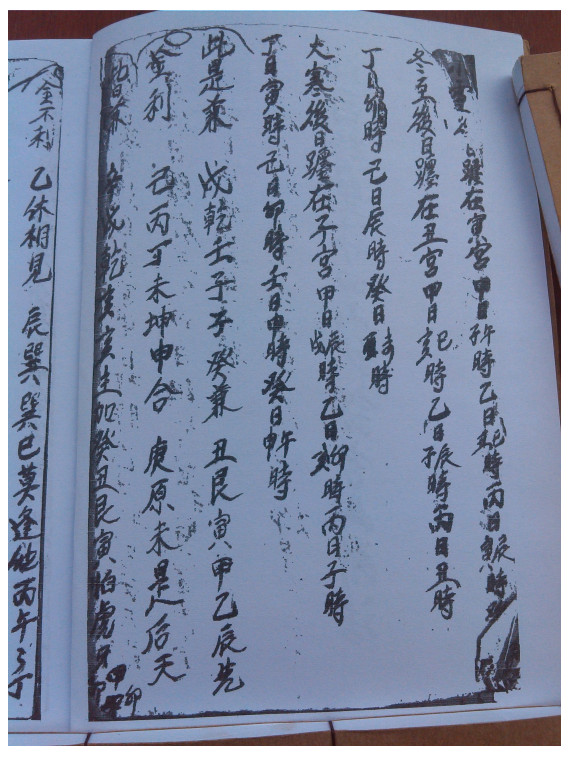 躔在寅宮甲日子午時乙日丑巳時丙日辰時
冬至後日躔在丑宮甲日巳亥時乙日子辰時丙日丑時
丁日卯時己日辰時癸日時
大寒後日躔在子宮甲日辰戌時乙日卯亥時丙日子時
丁日寅時己日卯時壬日申時癸日申午時
此是來戌乾壬子子癸兼丑艮寅甲乙辰先
金利己丙丁未坤申合庚原未是人后天
乾亥生如癸丑艮寅怕虎牙甲卯
金不利乙休相見辰巽巽巳莫逢他丙午丁